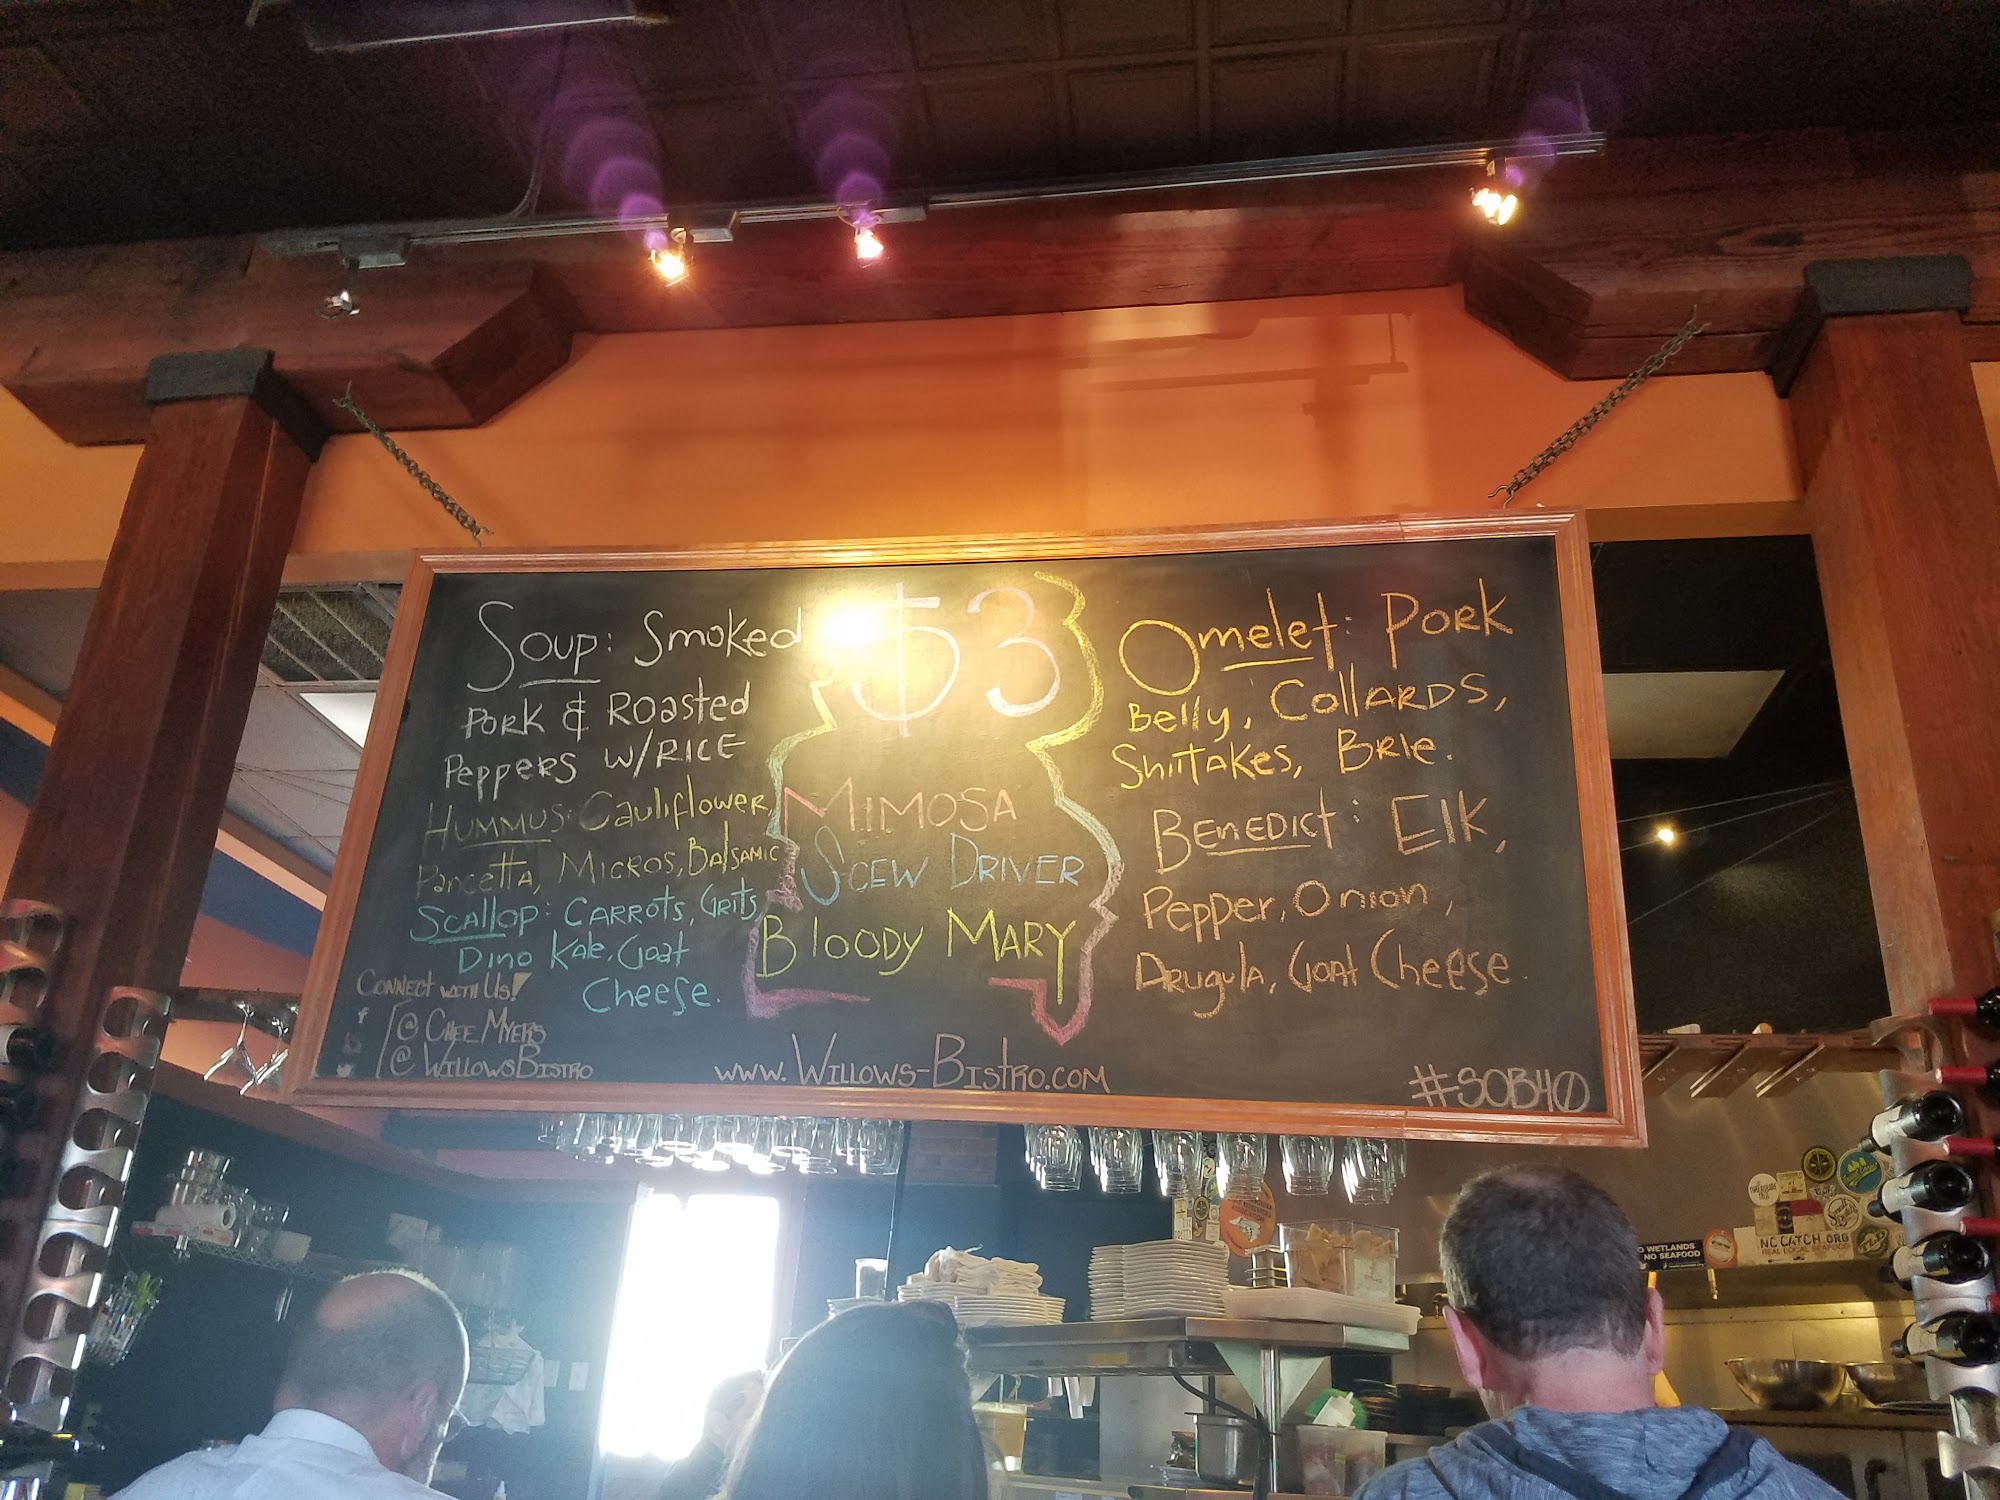 Soup: Smoked
Pork & Roasted
Peppers w/Rice
Hummus: Cauliflower,
Pancetta, Micros, Balsamic
Scallop: Carrots, Grits,
Dino Kale, Goat
Cheese.
Connect with Us!
@ Chee Myers
@ WillowsBistro
$3
Mimosa
Scew Driver
Bloody Mary
www.Willows-Bistro.com
Omelet: Pork
Belly, Collards,
Shiitakes, Brie.
Benedict: Elk,
Pepper, Onion,
Arugula, Goat Cheese
#SOB40
WETLANDS
NO SEAFOOD
NC CATCH.ORG
REAL LOCAL SEAFOOD